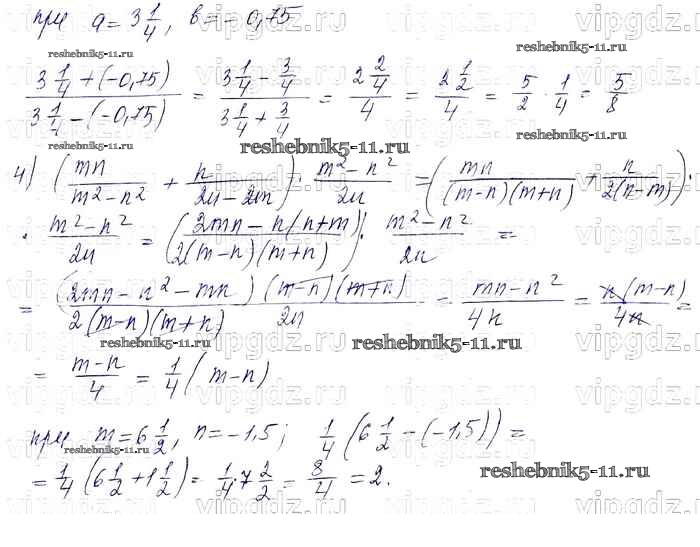 при a = 3 1/4, b = -0,75
(3 1/4 + (-0,75))/(3 1/4 - (-0,75)) = (3 1/4 - 3/4)/(3 1/4 + 3/4) = (2 2/4)/4 = (2 1/2)/4 = 5/2 · 1/4 = 5/8
4) (mn/(m²-n²) + n/(2n-2m)) : (m²-n²)/2n = (mn/((m-n)(m+n)) + n/(2(n-m))) ·
· (m²-n²)/2n = ((2mn - n(n+m))/(2(m-n)(m+n))) · (m²-n²)/2n =
= ((2mn - n² - mn)(m-n)(m+n))/(2(m-n)(m+n) 2n) = (mn-n²)/4n = n(m-n)/4n =
= (m-n)/4 = 1/4 (m-n)
при m = 6 1/2, n = -1,5; 1/4 (6 1/2 - (-1,5)) =
= 1/4 (6 1/2 + 1 1/2) = 1/4 · 7 2/2 = 8/4 = 2.
vipgdz.ru
reshebnik5-11.ru